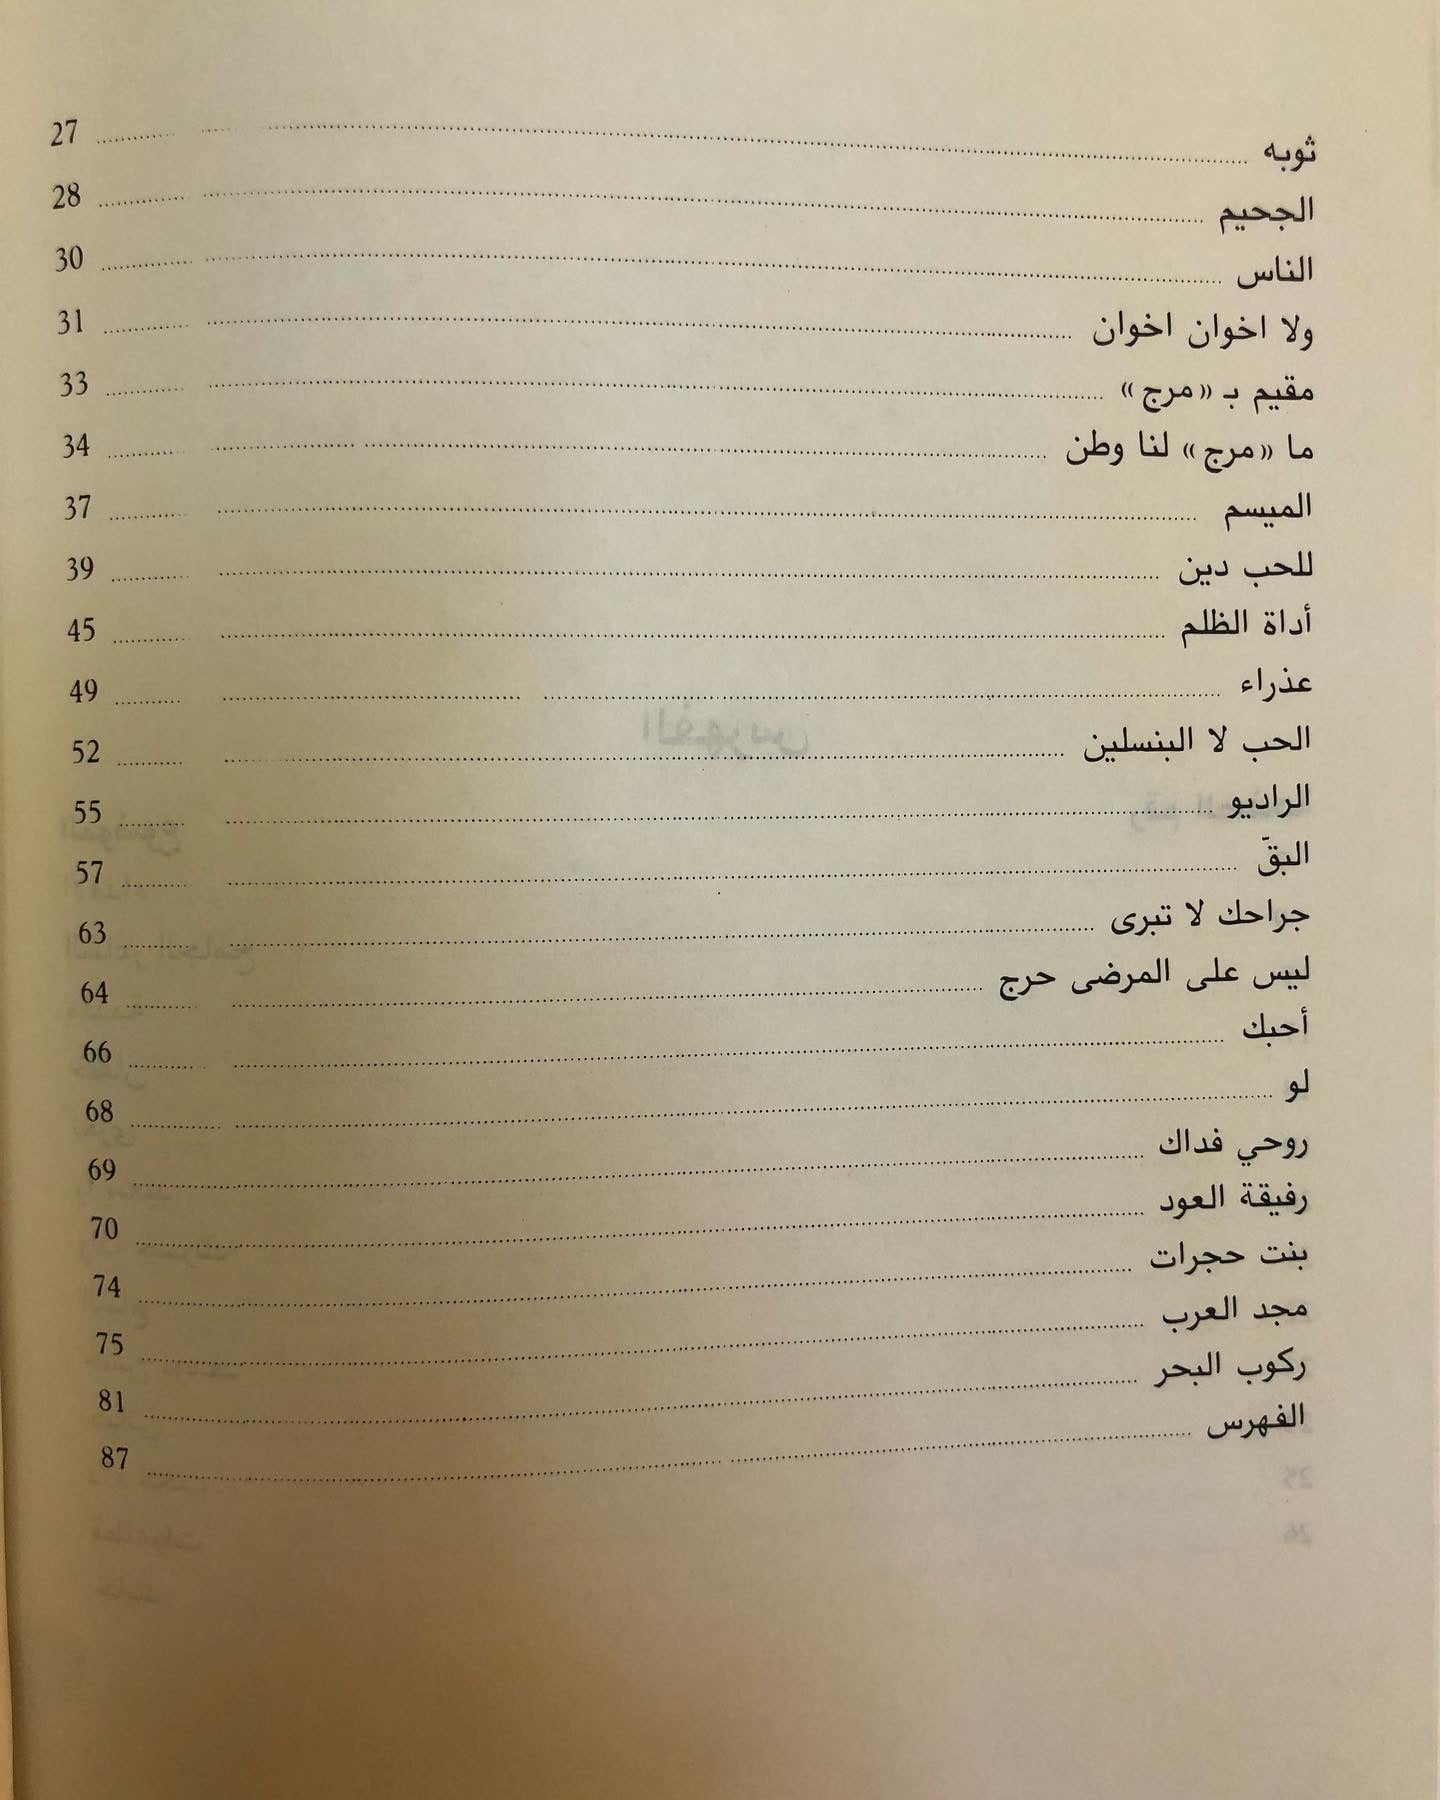 ثوبه 27
الجحيم 28
الناس 30
ولا اخوان اخوان 31
مقيم بـ «مرج» 33
ما «مرج» لنا وطن 34
الميسم 37
للحب دين 39
أداة الظلم 45
عذراء 49
الحب لا البنسلين 52
الراديو 55
البقّ 57
جراحك لا تبرى 63
ليس على المرضى حرج 64
أحبك 66
لو 68
روحي فداك 69
رفيقة العود 70
بنت حجرات 74
مجد العرب 75
ركوب البحر 81
الفهرس 87